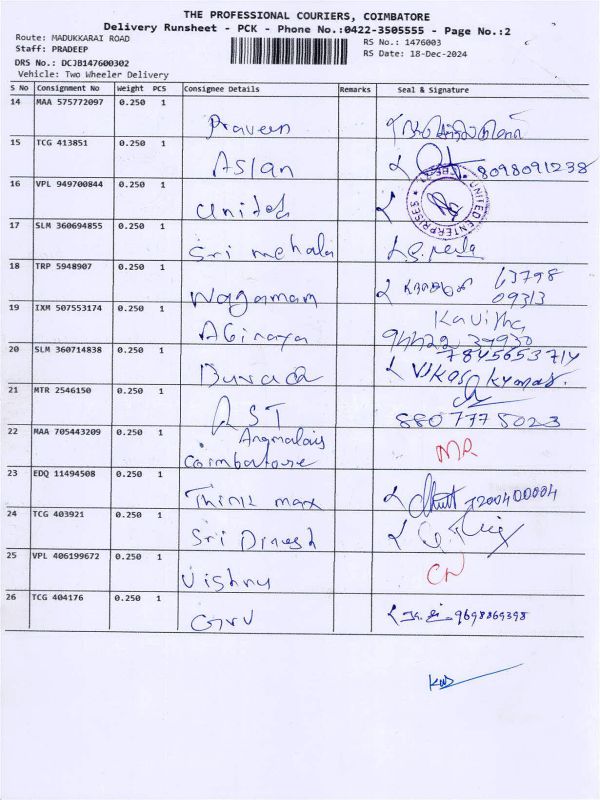 THE PROFESSIONAL COURIERS, COIMBATORE
Delivery Runsheet - PCK - Phone No.:0422-3505555 - Page No.:2
Route: MADUKKARAI ROAD
RS No.: 1476003
Staff: PRADEEP
RS Date: 18-Dec-2024
DRS No.: DCJB147600302
Vehicle: Two Wheeler Delivery
S No Consignment No Weight PCS Consignee Details Remarks Seal & Signature
14 MAA 575772097 0.250 1
Praveen
15 TCG 413851 0.250 1
Aslan 8098091238
16 VPL 949700844 0.250 1
United UNITED ENTERPRISES
17 SLM 360694855 0.250 1
Sri mehala
18 TRP 5948907 0.250 1
63798
Nagamam 09313
19 IXM 507553174 0.250 1
Kavitha
Abiraya 94422 37930
20 SLM 360714838 0.250 1
7845653714
Vikas Kumar.
21 MTR 2546150 0.250 1
RST 880 777 5023
22 MAA 705443209 0.250 1
Coimbatore
MR
23 EDQ 11494508 0.250 1
Think max 7200400004
24 TCG 403921 0.250 1
Sri Dinesh
25 VPL 406199672 0.250 1
Vishnu
CN
26 TCG 404176 0.250 1
Guru 9698869398